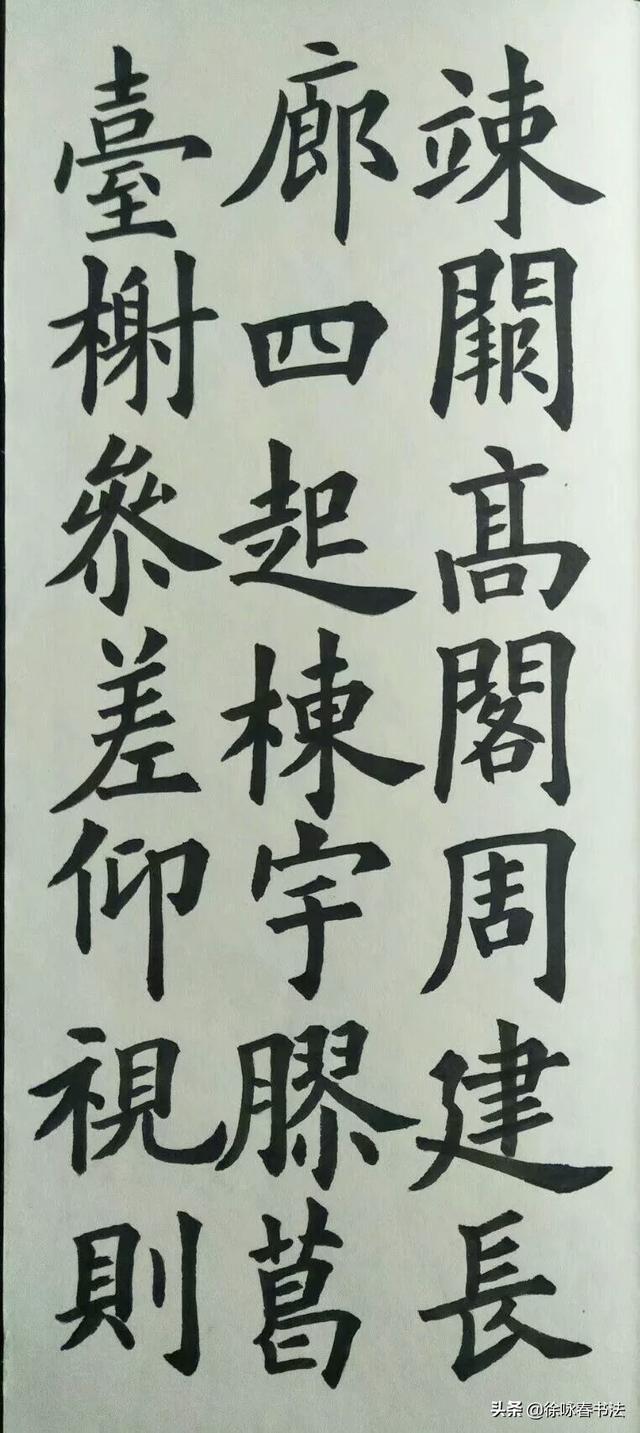 竦闕高閣周建長
廊四起棟宇膠葛
臺榭參差仰視則
头条 @徐咏春书法